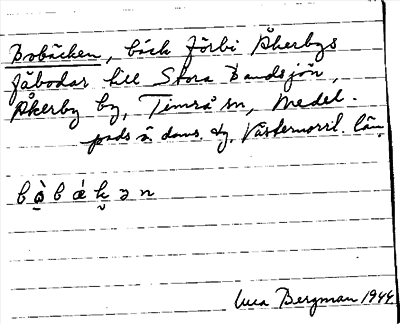 Bobäcken, bäck förbi Åkerbys
fäbodar till Stora Bandsjön,
Åkerby by, Timrå sn, Medel-
pads ö. doms. dg, Västernorrl. län.
Bergman 1944